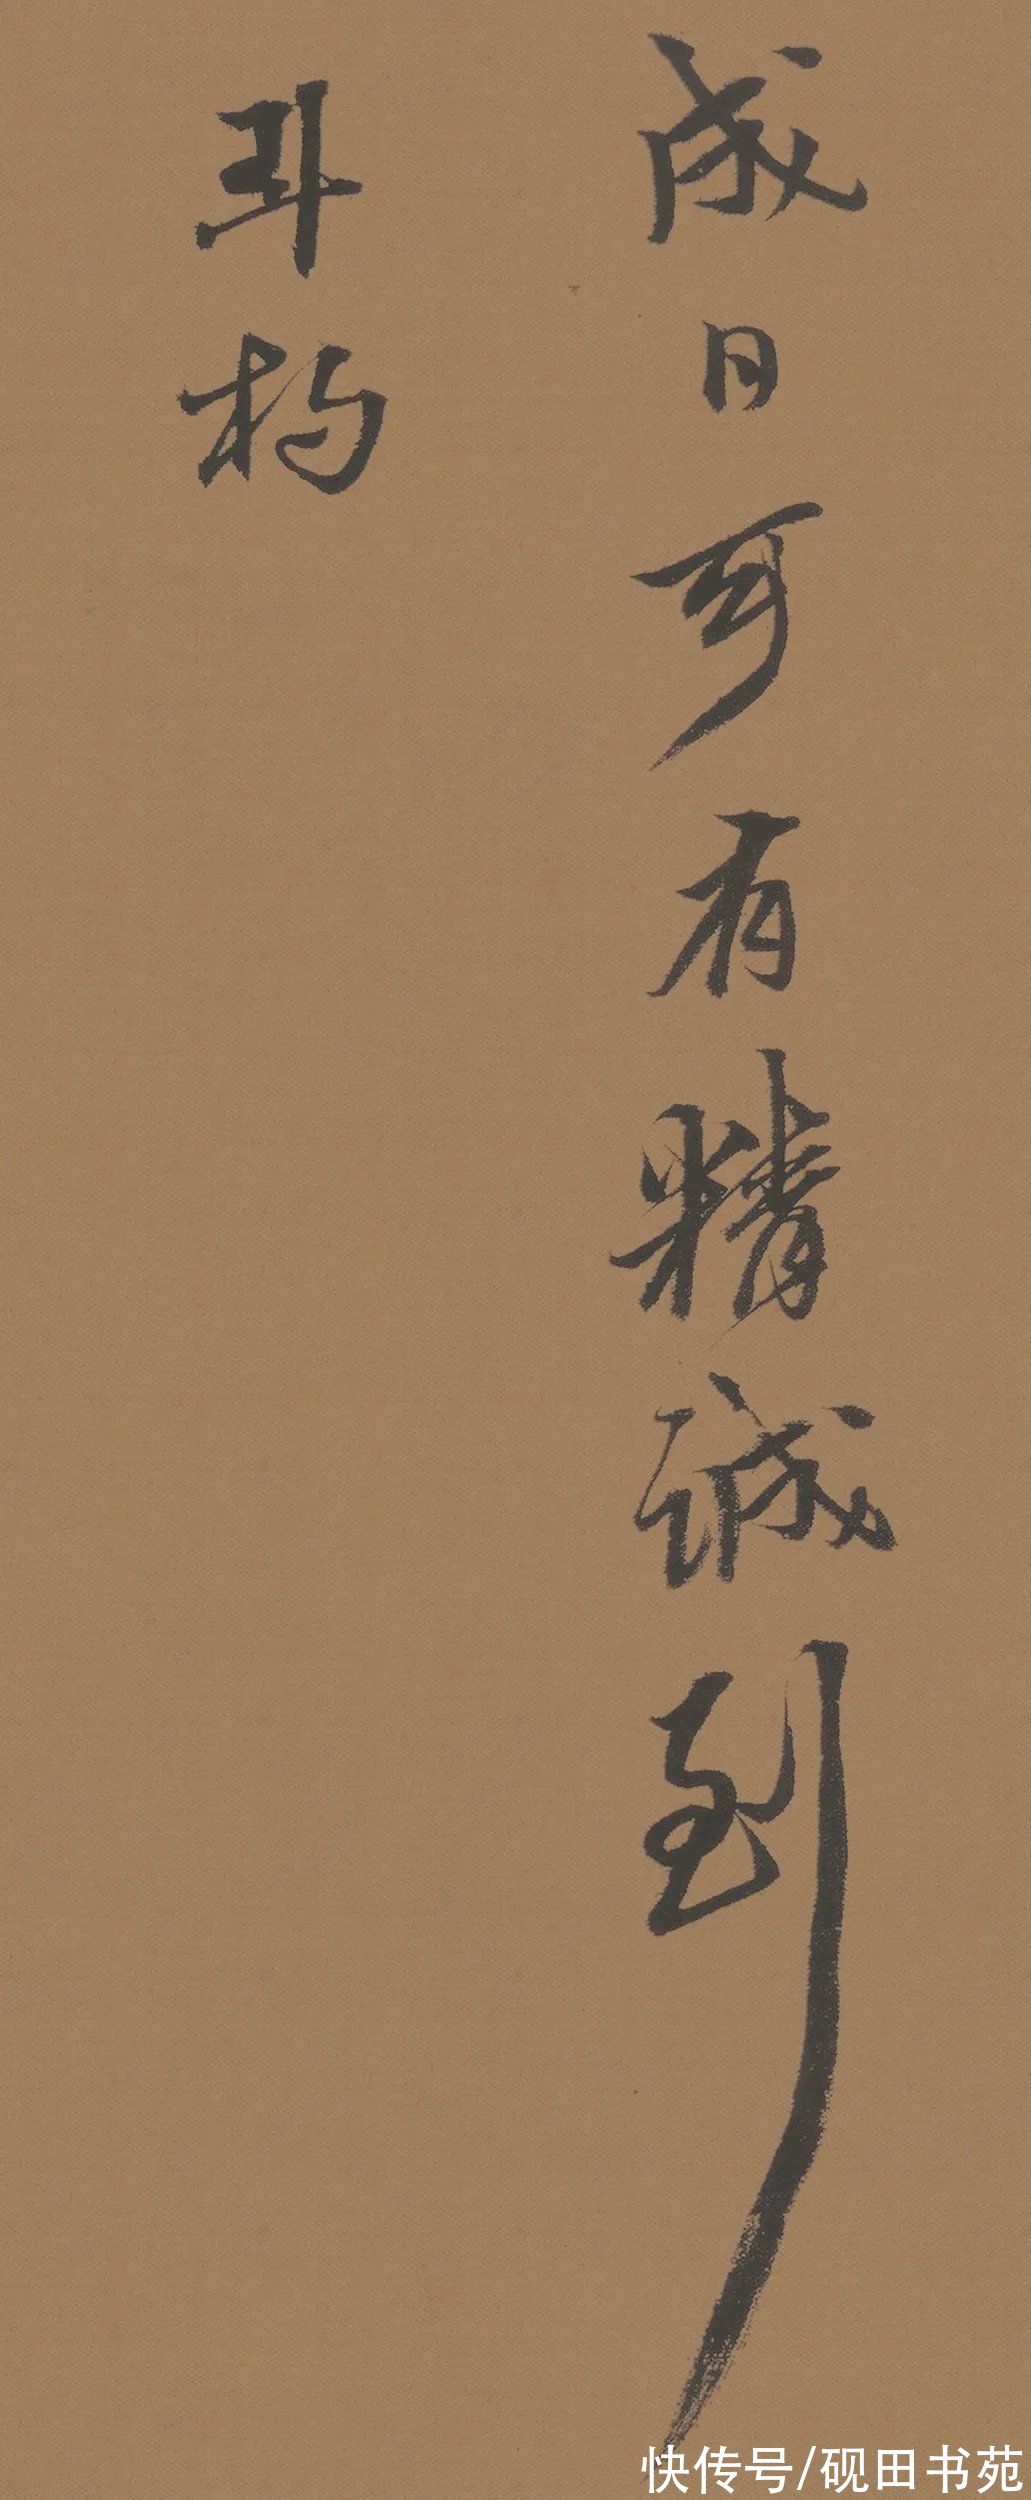 成日可有精誠到
斗杓
快传号/砚田书苑